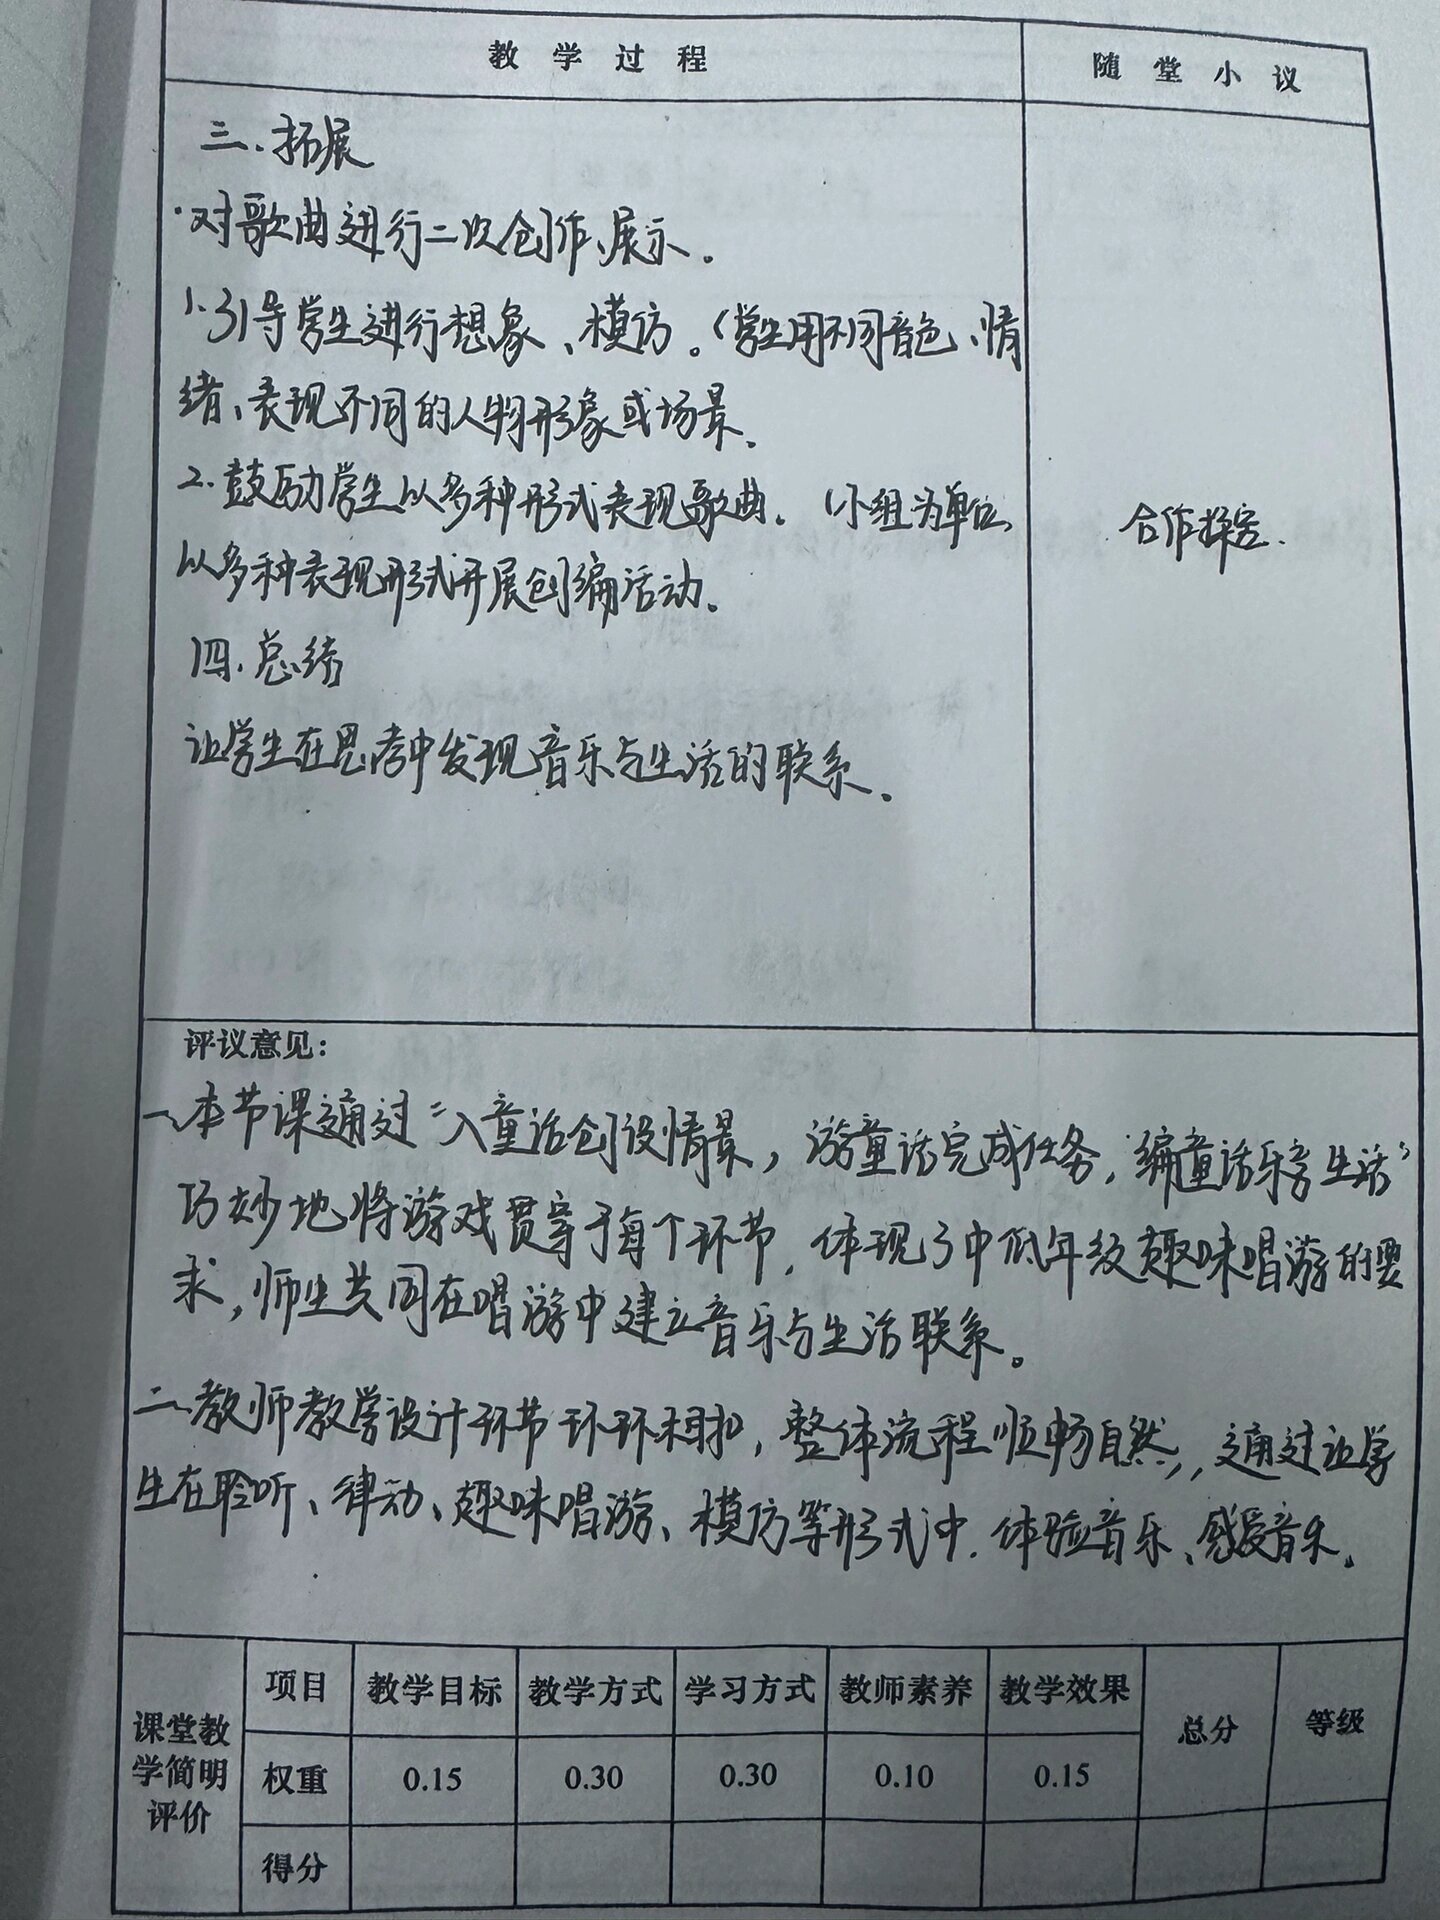 教学过程
随堂小议
三、拓展
·对歌曲进行二次创作、展示。
1.引导学生进行想象、模仿。(学生用不同音色、情
绪、表现不同的人物形象或场景。
2.鼓励学生以多种形式表现歌曲。(小组为单位
以多种表现形式开展创编活动。
合作探究.
四、总结
让学生在思考中发现音乐与生活的联系。
评议意见：
一、本节课通过"入童话创设情景，游童话完成任务，编童话乐享生活"
巧妙地将游戏贯穿于每个环节，体现了中低年级趣味唱游的要
求，师生共同在唱游中建立音乐与生活联系。
二、教师教学设计环节环环相扣，整体流程顺畅自然，，通过让学
生在聆听、律动、趣味唱游、模仿等形式中.体验音乐、感受音乐。
课堂教学简明评价
项目 教学目标 教学方式 学习方式 教师素养 教学效果 总分 等级
权重 0.15 0.30 0.30 0.10 0.15
得分